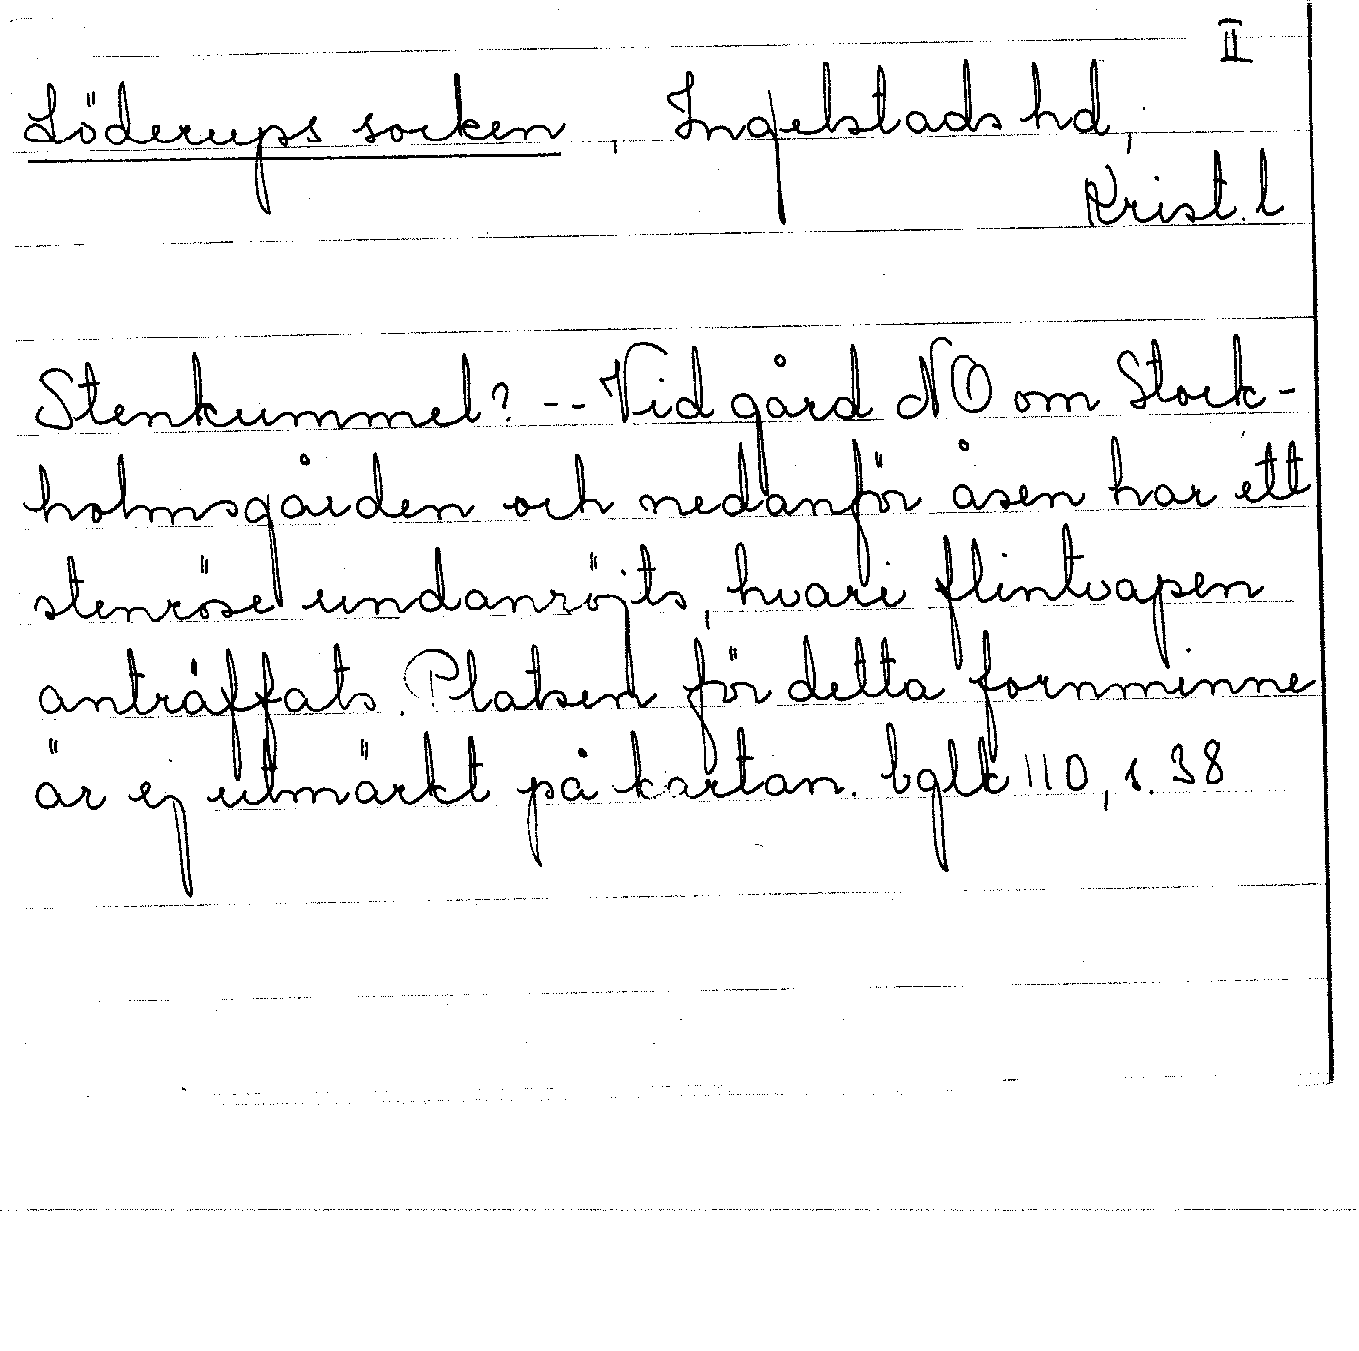 II
Löderups socken, Ingelstads hd,
Krist. l
Stenkummel? -- Vid gård NO om Stock-
holmsgården och nedanför åsen har ett
stenröse undanröjts, hvari flintvapen
anträffats. Platsen för detta fornminne
är ej utmärkt på kartan. bglk 110, s. 38